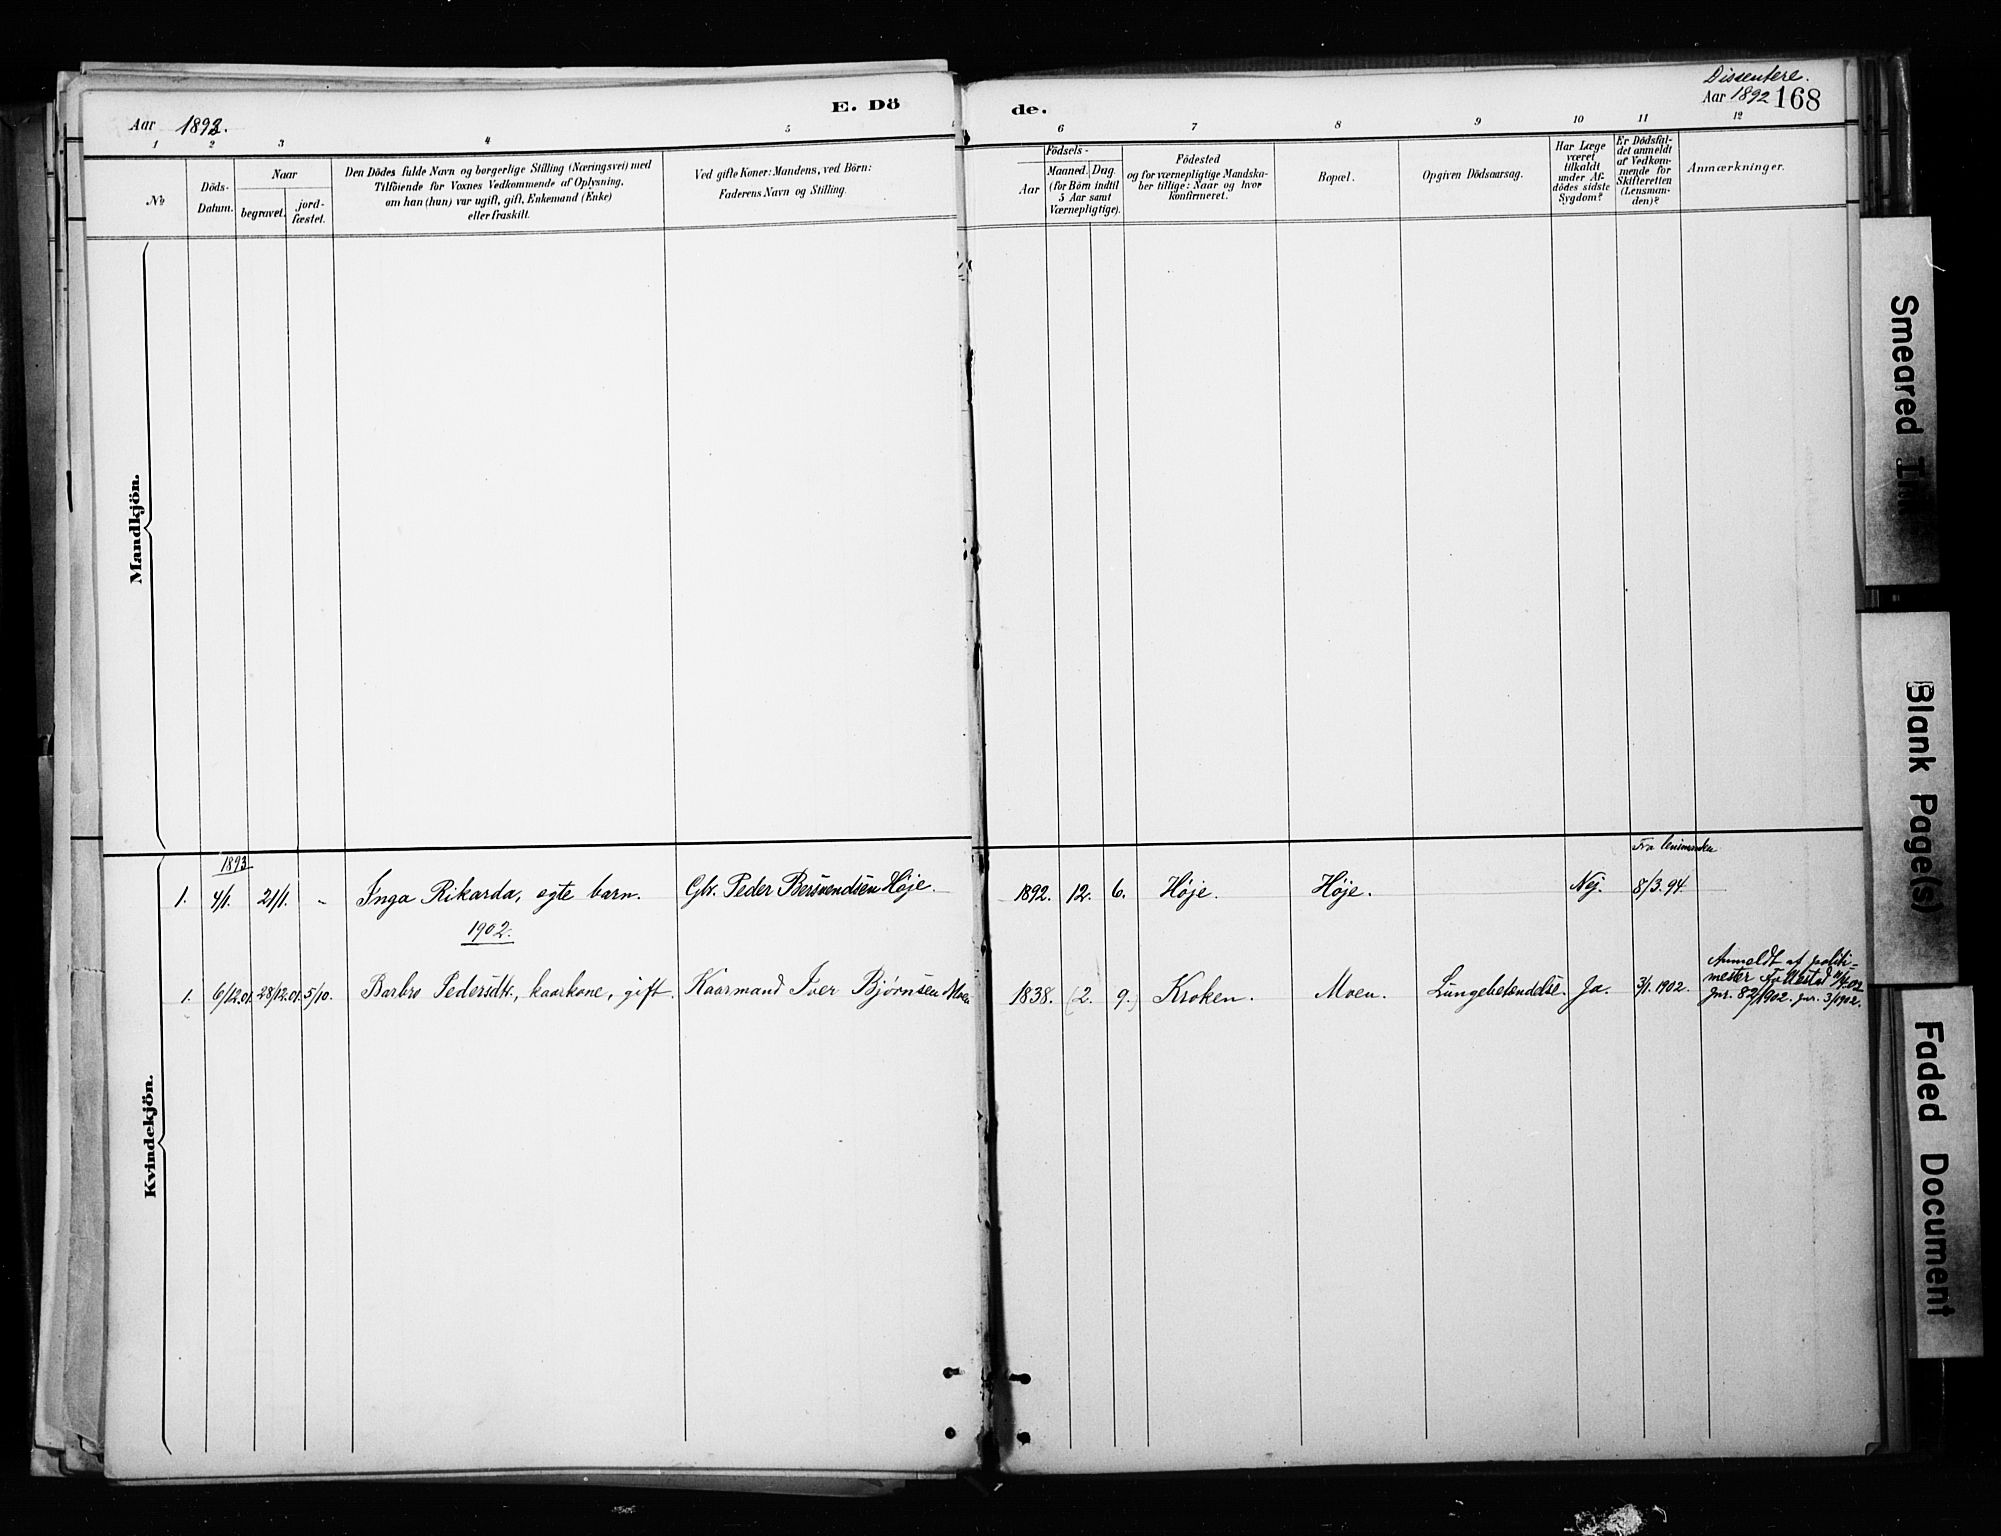 Dissentere.
Aar 1892.
E. Dö
de.
Aar 1892 168
1 2 3 4 5
6 7 8 9 10 11 12
№
Döds-
Datum.
Naar
begravet.
jord-
fæstet.
Den Dödes fulde Navn og borgerlige Stilling (Næringsvei) med
Tilföiende for Voxnes Vedkommende af Oplysning,
om han (hun) var ugift, gift, Enkemand (Enke)
eller fraskilt.
Ved gifte Koner: Mandens, ved Börn:
Faderens Navn og Stilling.
Födsels-
Aar
Maaned. Dag.
(for Börn indtil
5 Aar samt
Værnepligtige).
Födested
og for værnepligtige Mandska-
ber tillige: Naar og hvor
konfirmeret.
Bopæl.
Opgiven Dödsaarsag.
Har Læge
været
tilkaldt
under Af-
dödes sidste
Sygdom?
Er Dödsfal-
det anmeldt
af Vedkom-
mende for
Skifteretten
(Lensman-
den)?
Anmærkninger.
Mandkjön.
Kvindekjön.
1893
Fra lensmanden
1. 4/1. 21/1. - Inga Rikarda, egte barn. Gbr. Peder Bersvendsen Høje. 1892. 12. 6. Høje. Høje. Nej. 8/3.94.
1902.
1. 6/12.01. 28/12.01. 5/10. Barbro Pedersdtr., kaarkone, gift. Kaarmand Iver Bjørnsen Moen 1838. (2. 9.) Kroken. Moen. Lungebetændelse. Ja. 3/1. 1902.
Anmeldt af politi-
mester
Jnr. 82/1902. jnr. 3/1902.
Smeared
Blank Page(s)
Faded Document